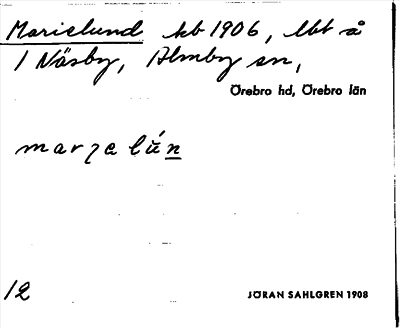 Marielund kb 1906, lbt å
1 Näsby, Almby sn,
Örebro hd, Örebro län
12
JÖRAN SAHLGREN 1908